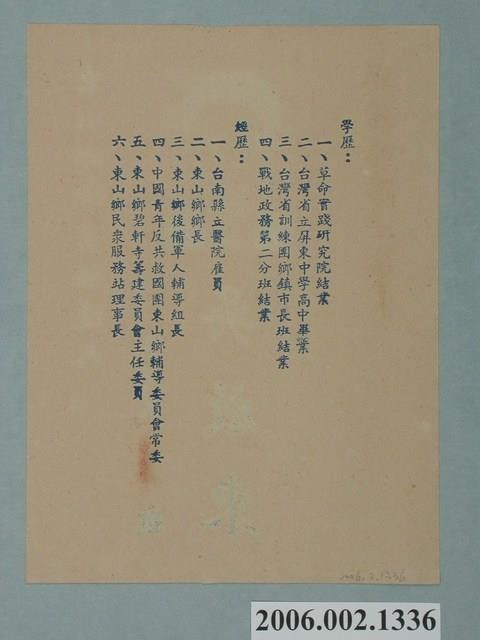 學歷：
一、革命實踐研究院結業
二、台灣省立屏東中學高中畢業
三、台灣省訓練團鄉鎮市長班結業
四、戰地政務第二分班結業
經歷：
一、台南縣立醫院雇員
二、東山鄉鄉長
三、東山鄉後備軍人輔導組長
四、中國青年反共救國團東山鄉輔導委員會常委
五、東山鄉碧軒寺籌建委員會主任委員
六、東山鄉民衆服務站理事長
2006.2.1336
2006.002.1336